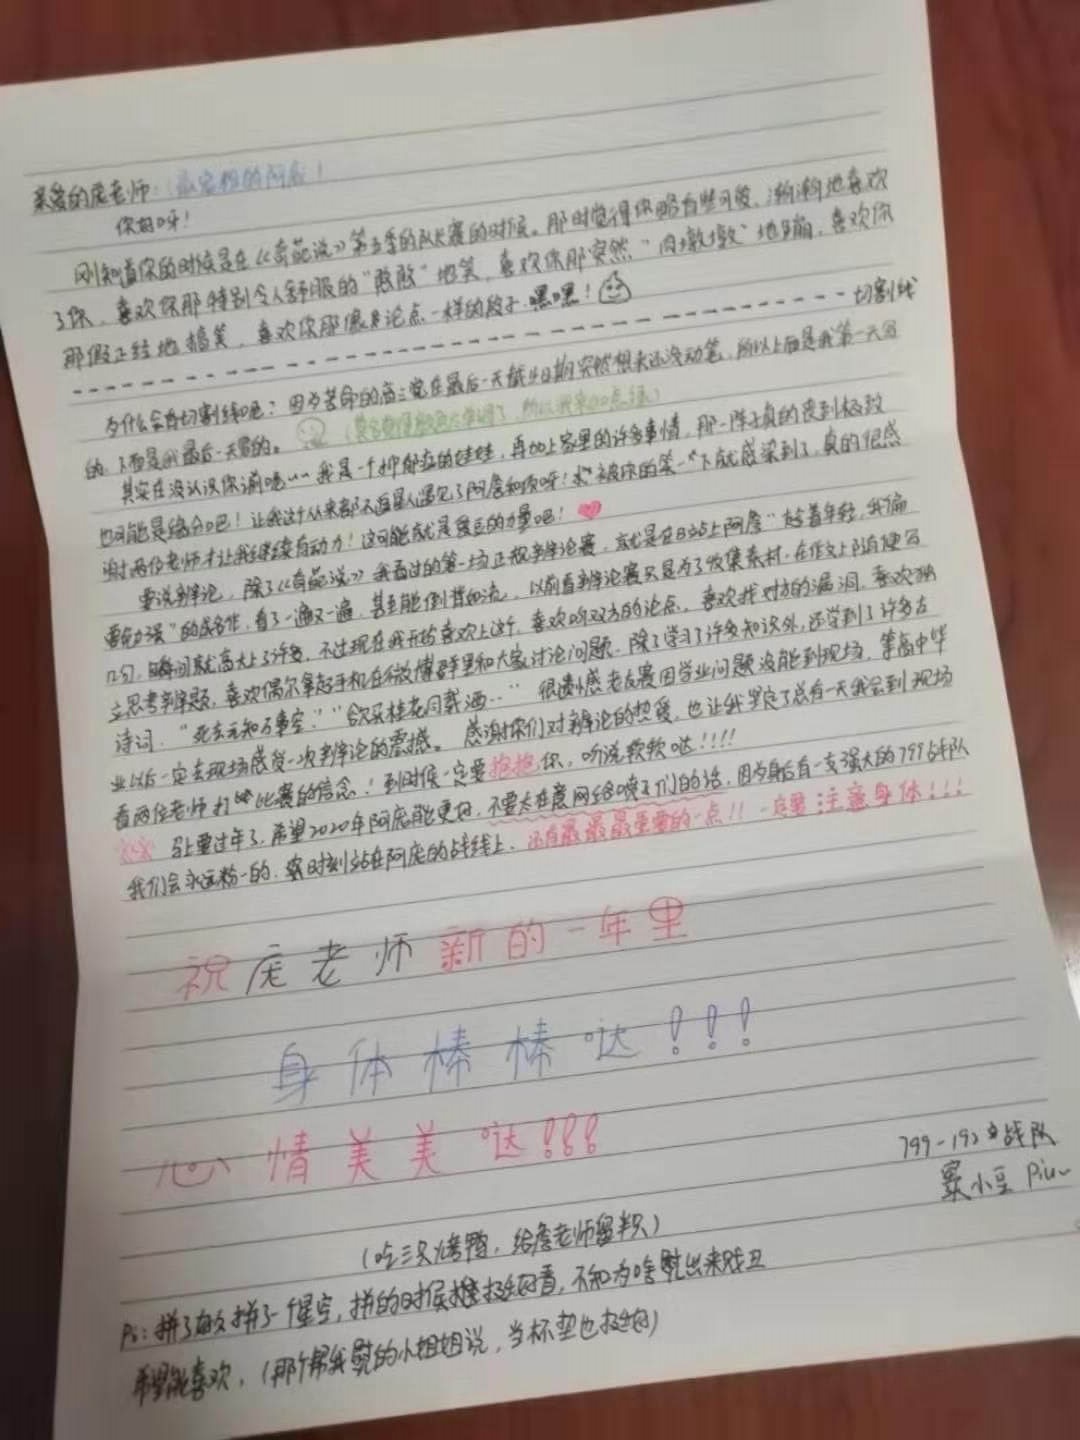 亲爱的庞老师：（最宝贵的阿庞）
你好呀！
刚知道你的时候是在《奇葩说》第五季的队长赛的时候。那时觉得你略有些可爱，渐渐地喜欢
了你，喜欢你那特别令人舒服的“憨憨”地笑，喜欢你那突然“肉墩墩”地蹦，喜欢你
那假正经地搞笑，喜欢你那像是论点一样的段子.嘿嘿！
切割线
为什么会有切割线呢？因为苦命的高三党在最后一天截止日期突然想来还没动笔，所以上面是我第一天写
的，下面是我最后一天写的。
其实在没认识你前呢~~我是一个抑郁症的娃娃，再加上家里的许多事情，那一阵子真的丧到极致
也可能是缘分吧！让我这个从来都不追星人遇见了阿詹和庞呀！被你的笑一下就感染到了，真的很感
谢两位老师才让我继续有动力！这可能就是爱豆的力量吧！
要说辩论，除了《奇葩说》我看过的第一场正规辩论赛，就是在B站上阿詹“趁着年轻，我偏
要勉强”的成名作，看了一遍又一遍，甚至能倒背如流，以前看辩论赛只是为了收集素材，在作文上随便写
几句，瞬间就高大上了许多，不过现在我开始喜欢上这个，喜欢听双方的论点，喜欢找对方的漏洞，喜欢独
立思考辩题，喜欢偶尔拿起手机在微博群里和大家讨论问题，除了学习了许多知识外，还学到了许多古
诗词，“死去元知万事空”“欲买桂花同载酒..”很遗憾老友赛因学业问题没能到现场，等高中毕
业以后一定去现场感受一次辩论的震撼。感谢你们对辩论的热爱，也让我坚定了总有一天我会到现场
看两位老师打比赛的信念！到时候一定要抱抱你，听说软软哒！！！！
马上要过年了，希望2020年阿庞能更好，不要太在意网络喷子们的话，因为身后有一支强大的799战队
我们会永远粉一的，时刻站在阿庞的战线上，还有最最最重要的一点！！一定要注意身体！！！
祝庞老师新的一年里
身体棒棒哒！！！
心情美美哒！！！
799-192战队
窦小豆 Piu~
（吃三只烤鸭，给詹老师留半只）
Ps：拼了好久拼了一个星空，拼的时候挺好看，不知为啥熨出来贼丑
希望能喜欢，（那个帮我熨的小姐姐说，当杯垫也好）